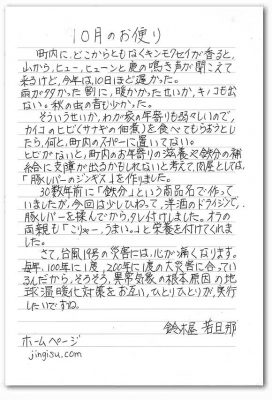 10月のお便り
町内に、どこからともなくキンモクセイが香ると、
山から、ヒュー、ヒューンと鹿の鳴き声が聞こえて
来るけど、今年は、10日ほど遅かった。
雨が多かった割に、暖かかったせいか、キノコも出
ない。秋の虫の音も少なかった。
そういうせいか、わが家の年寄りも弱々しいので、
カイコのヒビ(サナギの佃煮)を食べてもらおうとし
たら、何と、町内のスーパーに置いてない。
ヒビがないと、町内のお年寄りの滋養や鉄分の補
給に支障が出るかもしれないと考えて、肉屋としては、
「豚レバーのジンギス」を作りました。
30数年前に「鉄分」という商品名で作って
いましたが、今回は少しひねって、洋酒のドライジンで、
豚レバーを揉んでから、タレ付けしました。オラの
両親も「こりゃー、うまい。」と栄養を付けてくれま
した。
さて、台風19号の災害には、心が痛くなります。
毎年、100年に1度、200年に1度の大災害に合ってい
るんだから、そろそろ、異常気象の根本原因の地
球温暖化対策をお互い、ひとりひとりが、実行
したいですね。
鈴木屋 若旦那
ホームページ
jingisu.com